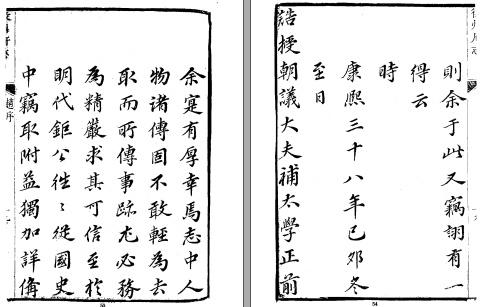 余寔有厚幸焉志中人
物諸傳固不敢輕為去
取而所傳事跡尤必務
為精嚴求其可信至於
明代鉅公往〻從國史
中竊取附益獨加詳備
趙序
則余于此又竊詡有一
得云
時
康熙三十八年己夘冬
至日
誥授朝議大夫補太學正前
54